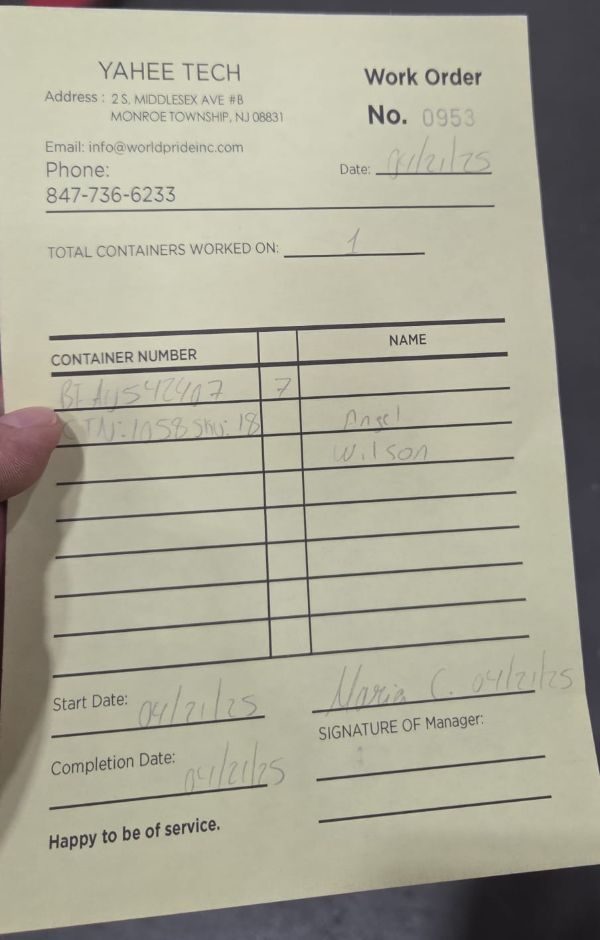 YAHEE TECH
Address : 2 S. MIDDLESEX AVE #B
MONROE TOWNSHIP, NJ 08831
Email: info@worldprideinc.com
Phone:
847-736-6233
Work Order
No. 0953
Date: 04/21/25
TOTAL CONTAINERS WORKED ON: 1
CONTAINER NUMBER NAME
7
CTN: 1058 SKU: 18 Angel
Wilson
Start Date: 04/21/25
Maria C. 04/21/25
SIGNATURE OF Manager:
Completion Date: 04/21/25
Happy to be of service.